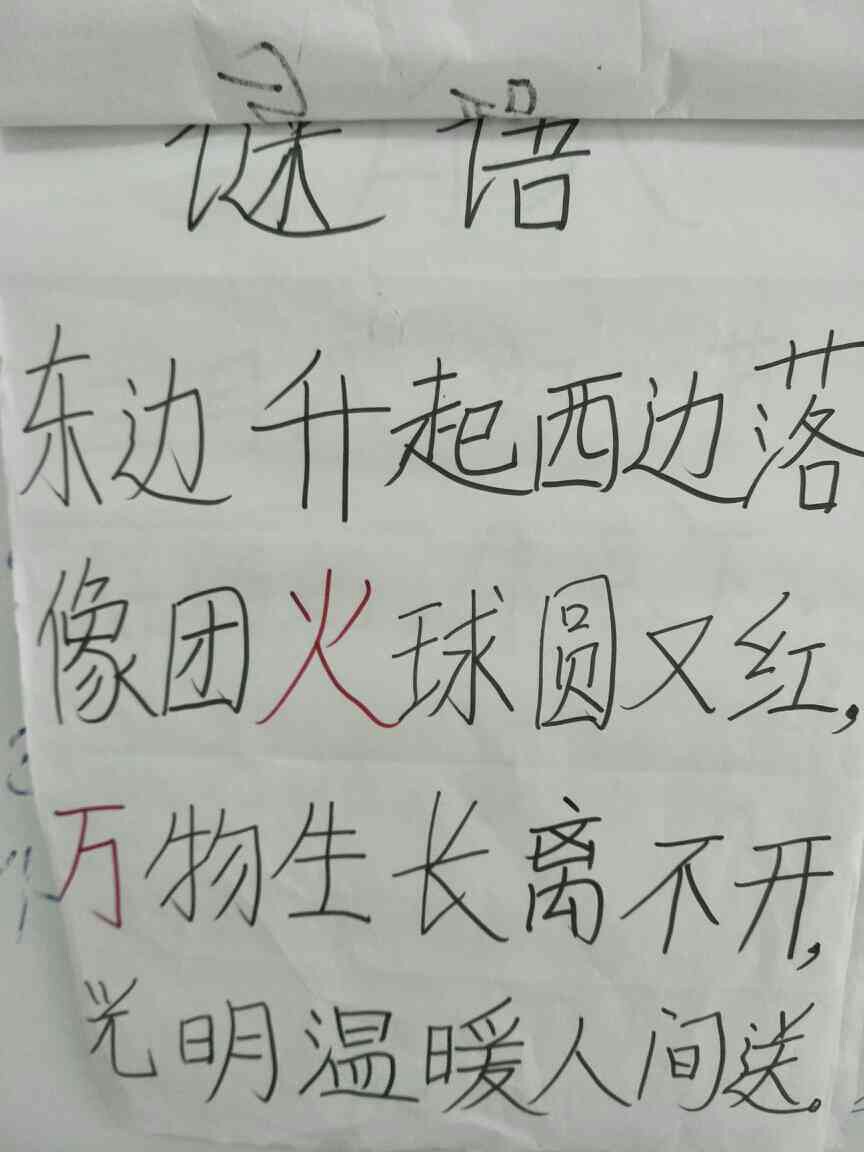 谜语
东边升起西边落
像团火球圆又红,
万物生长离不开,
光明温暖人间送。